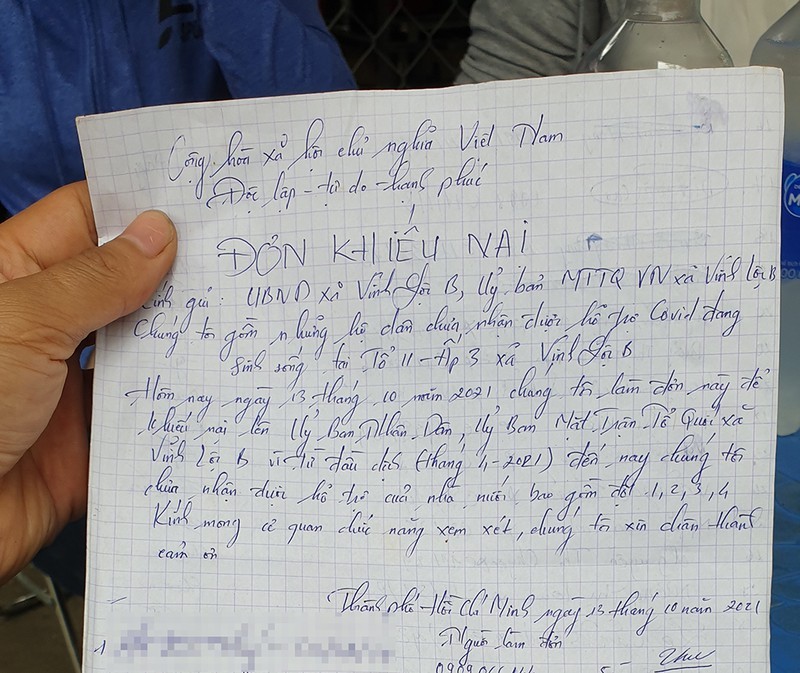 Cộng hòa xả hội chủ nghỉa Việt Nam
Độc lập - tự do - hạnh phúc
ĐỎN KHIẾU NẠI
Kính gửi: UBND xả Vĩnh Lộc B, Uỷ ban MTTQ VN xả Vĩnh Lộc B
Chúng tôi gồm những hộ dân chưa nhận được hổ trợ Covid đang
sinh sống tại Tổ 11 - Ấp 3 xả Vĩnh Lộc B
Hôm nay ngày 13 tháng 10 năm 2021 chúng tôi làm đơn này để
khiếu nại lên Uỷ Ban Nhân Dân, Uỷ Ban Mặt Trận Tổ Quốc xã
Vĩnh Lộc B vì từ đầu dịch (tháng 4-2021) đến nay chúng tôi
chưa nhận được hổ trợ của nhà nước bao gồm đợt 1, 2, 3, 4
Kính mong cơ quan chức năng xem xét, chúng tôi xin chân thành
cảm ơn
Thành phố Hồ Chí Minh ngày 13 tháng 10 năm 2021
Người làm đơn